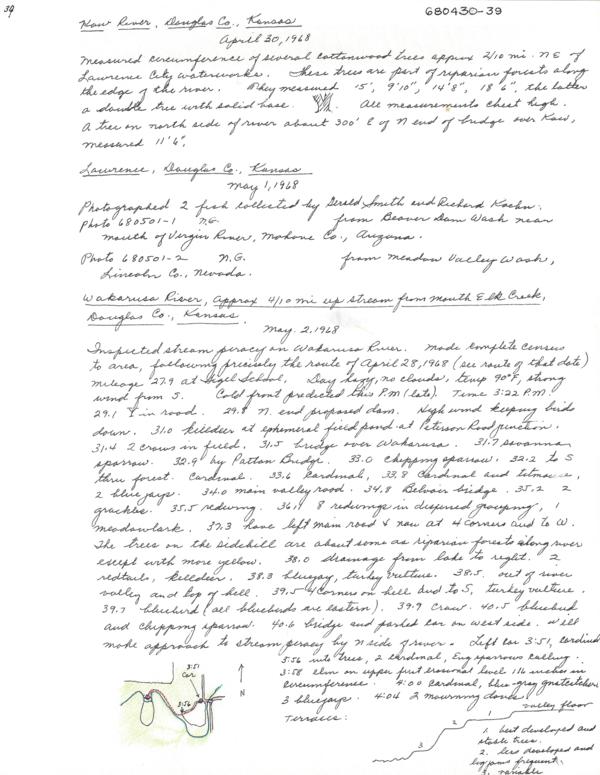 39
680430-39
Kaw River, Douglas Co., Kansas
April 30, 1968
Measured circumference of several cottonwood trees approx 2/10 mi. NE of
Lawrence City Waterworks. These trees are part of riparian forests along
the edge of the river. They measured 15', 9'10", 14'8", 18'6", the latter
a double tree with solid base. All measurements chest high.
A tree on north side of river about 300' E of N end of bridge over Kaw,
measured 11'6".
Lawrence, Douglas Co., Kansas
May 1, 1968
Photographed 2 fish collected by Gerald Smith and Richard Koehn.
Photo 680501-1 N.G. from Beaver Dam Wash near
mouth of Virgin River, Mohave Co., Arizona.
Photo 680501-2 N.G. from Meadow Valley Wash,
Lincoln Co., Nevada.
Wakarusa River, approx 4/10 mi up stream from mouth Elk Creek,
Douglas Co., Kansas.
May 2, 1968
Inspected stream piracy on Wakarusa River. Made complete census
to area, following precisely the route of April 28, 1968 (see route of that date)
mileage 27.9 at Sigel School. Day hazy, no clouds, temp 90°F, strong
wind from S. Cold front predicted this P.M. (late). Time 3:22 P.M.
29.1 Y in road. 29.8 N. end proposed dam. High wind keeping birds
down. 31.0 killdeer at ephemeral field pond at Peterson Road junction.
31.4 2 crows in field. 31.5 bridge over Wakarusa. 31.7 savanna
sparrow. 32.9 by Patton Bridge. 33.0 chipping sparrow. 32.2 to S
thru forest. Cardinal. 33.6 Cardinal, 33.8 Cardinal and titmouse,
2 bluejays. 34.0 main valley road. 34.8 Belvoir bridge. 35.2 2
grackles. 35.5 redwing. 36.1 8 redwings in dispersed grouping, 1
meadowlark. 37.3 have left main road & now at 4 corners and to W.
The trees on the sidehill are about same as riparian forests along river
except with more yellow. 38.0 drainage from lake to right. 2
redtails, killdeer. 38.3 bluejay, turkey vulture. 38.5 out of river
valley and top of hill. 39.5 4 corners on hill and to S, turkey vulture.
39.7 bluebird (all bluebirds are eastern). 39.9 crow. 40.5 bluebird
and chipping sparrow. 40.6 bridge and parked car on west side. Will
make approach to stream piracy by N side of river. Left car 3:51, cardinal
3:56 into trees, 2 cardinal, Eng sparrows calling.
3:58 elm on upper first erosional level 116 inches in
circumference. 4:00 cardinal, blue-gray gnatcatcher,
3 bluejays. 4:04 2 mourning doves.
Terraces:
valley floor
1
2
3
1. best developed and
stable trees.
2. less developed and
log jams frequent.
3. variable
3:51
Car
3:56
N